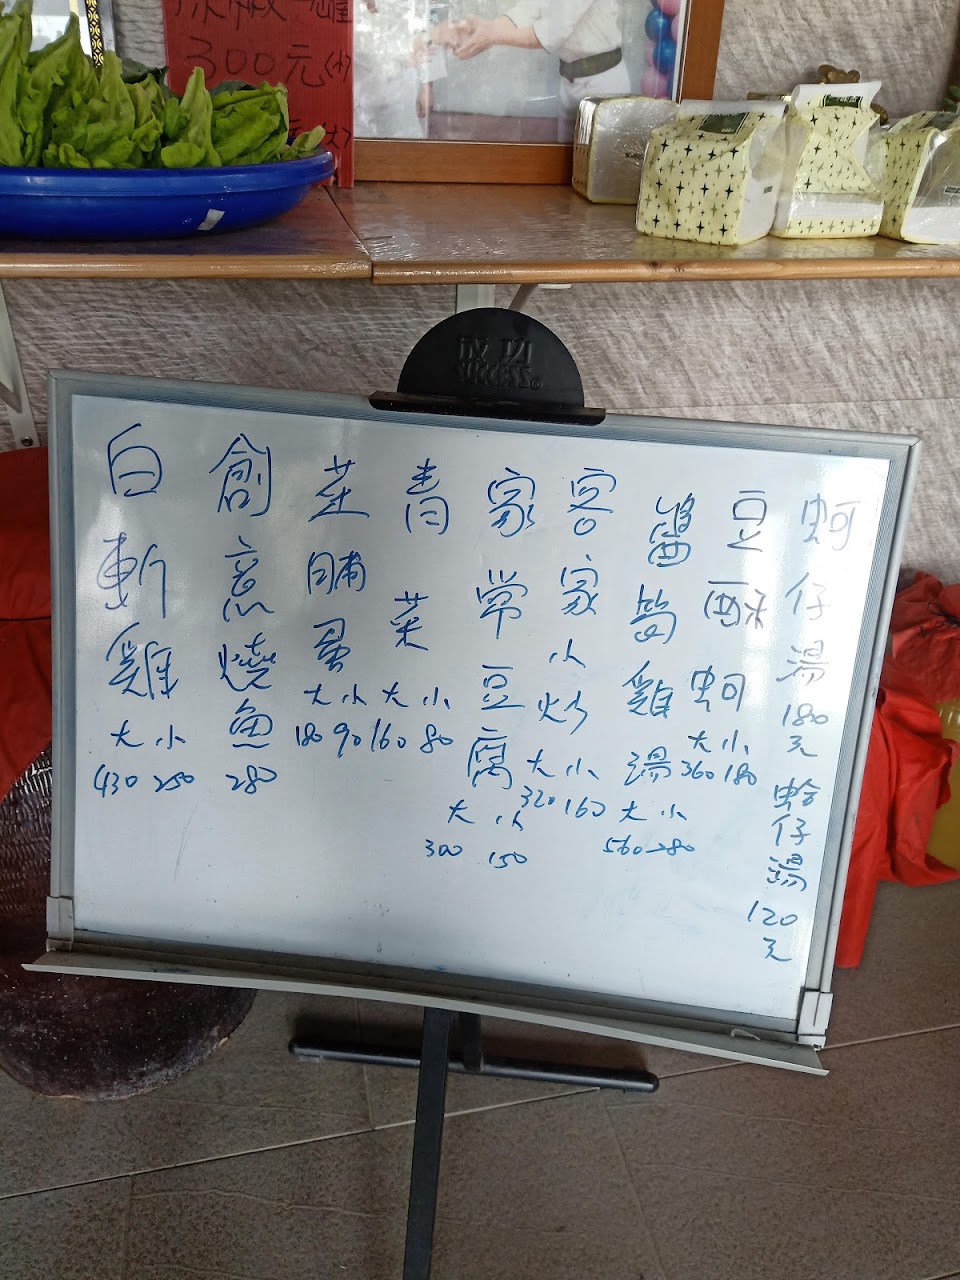 300元(小
成功
SUCCESS
蚵仔湯180元
蛤仔湯120元
豆酥蚵
大 小
360 180
醬筍雞湯
大 小
560 280
客家小炒
大 小
320 160
家常豆腐
大 小
300 150
青菜
大 小
160 80
菜脯蛋
大 小
180 90
創意燒魚
280
白斬雞
大 小
430 250